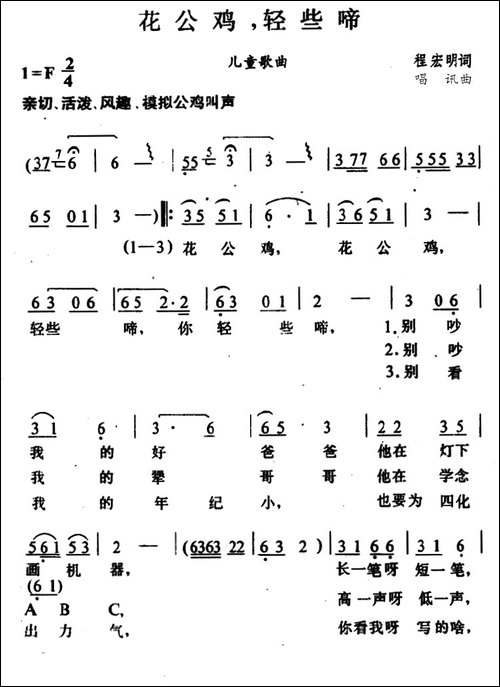 花公鸡,轻些啼
儿童歌曲
程宏明词
1=F 2/4
唱 讯曲
亲切、活泼、风趣、模拟公鸡叫声
(37 7 6 | 6 — | 55 5 3 | 3 — | 3 77 66 | 5 55 33 |
65 01 | 3 —) ‖: 35 51 | 6 · 1 | 36 51 | 3 — |
(1—3) 花 公 鸡, 花 公 鸡,
63 06 | 65 2·2 | 63 01 | 2 — | 3 06 |
轻些 啼, 你 轻 些 啼, 1.别 吵
2.别 吵
3.别 看
31 6 | 3 · 6 | 65 3 | 22 35 |
我 的 好 爸 爸 他在 灯下
我 的 犟 哥 哥 他在 学念
我 的 年 纪 小, 也要为 四化
561 53 | 2 — | (6363 22 | 63 2) | 31 66 | 31 6 |
画 机 器, 长一笔呀 短一笔,
(61)
A B C, 高一声呀 低一声,
出 力 气, 你看我呀 写的啥,